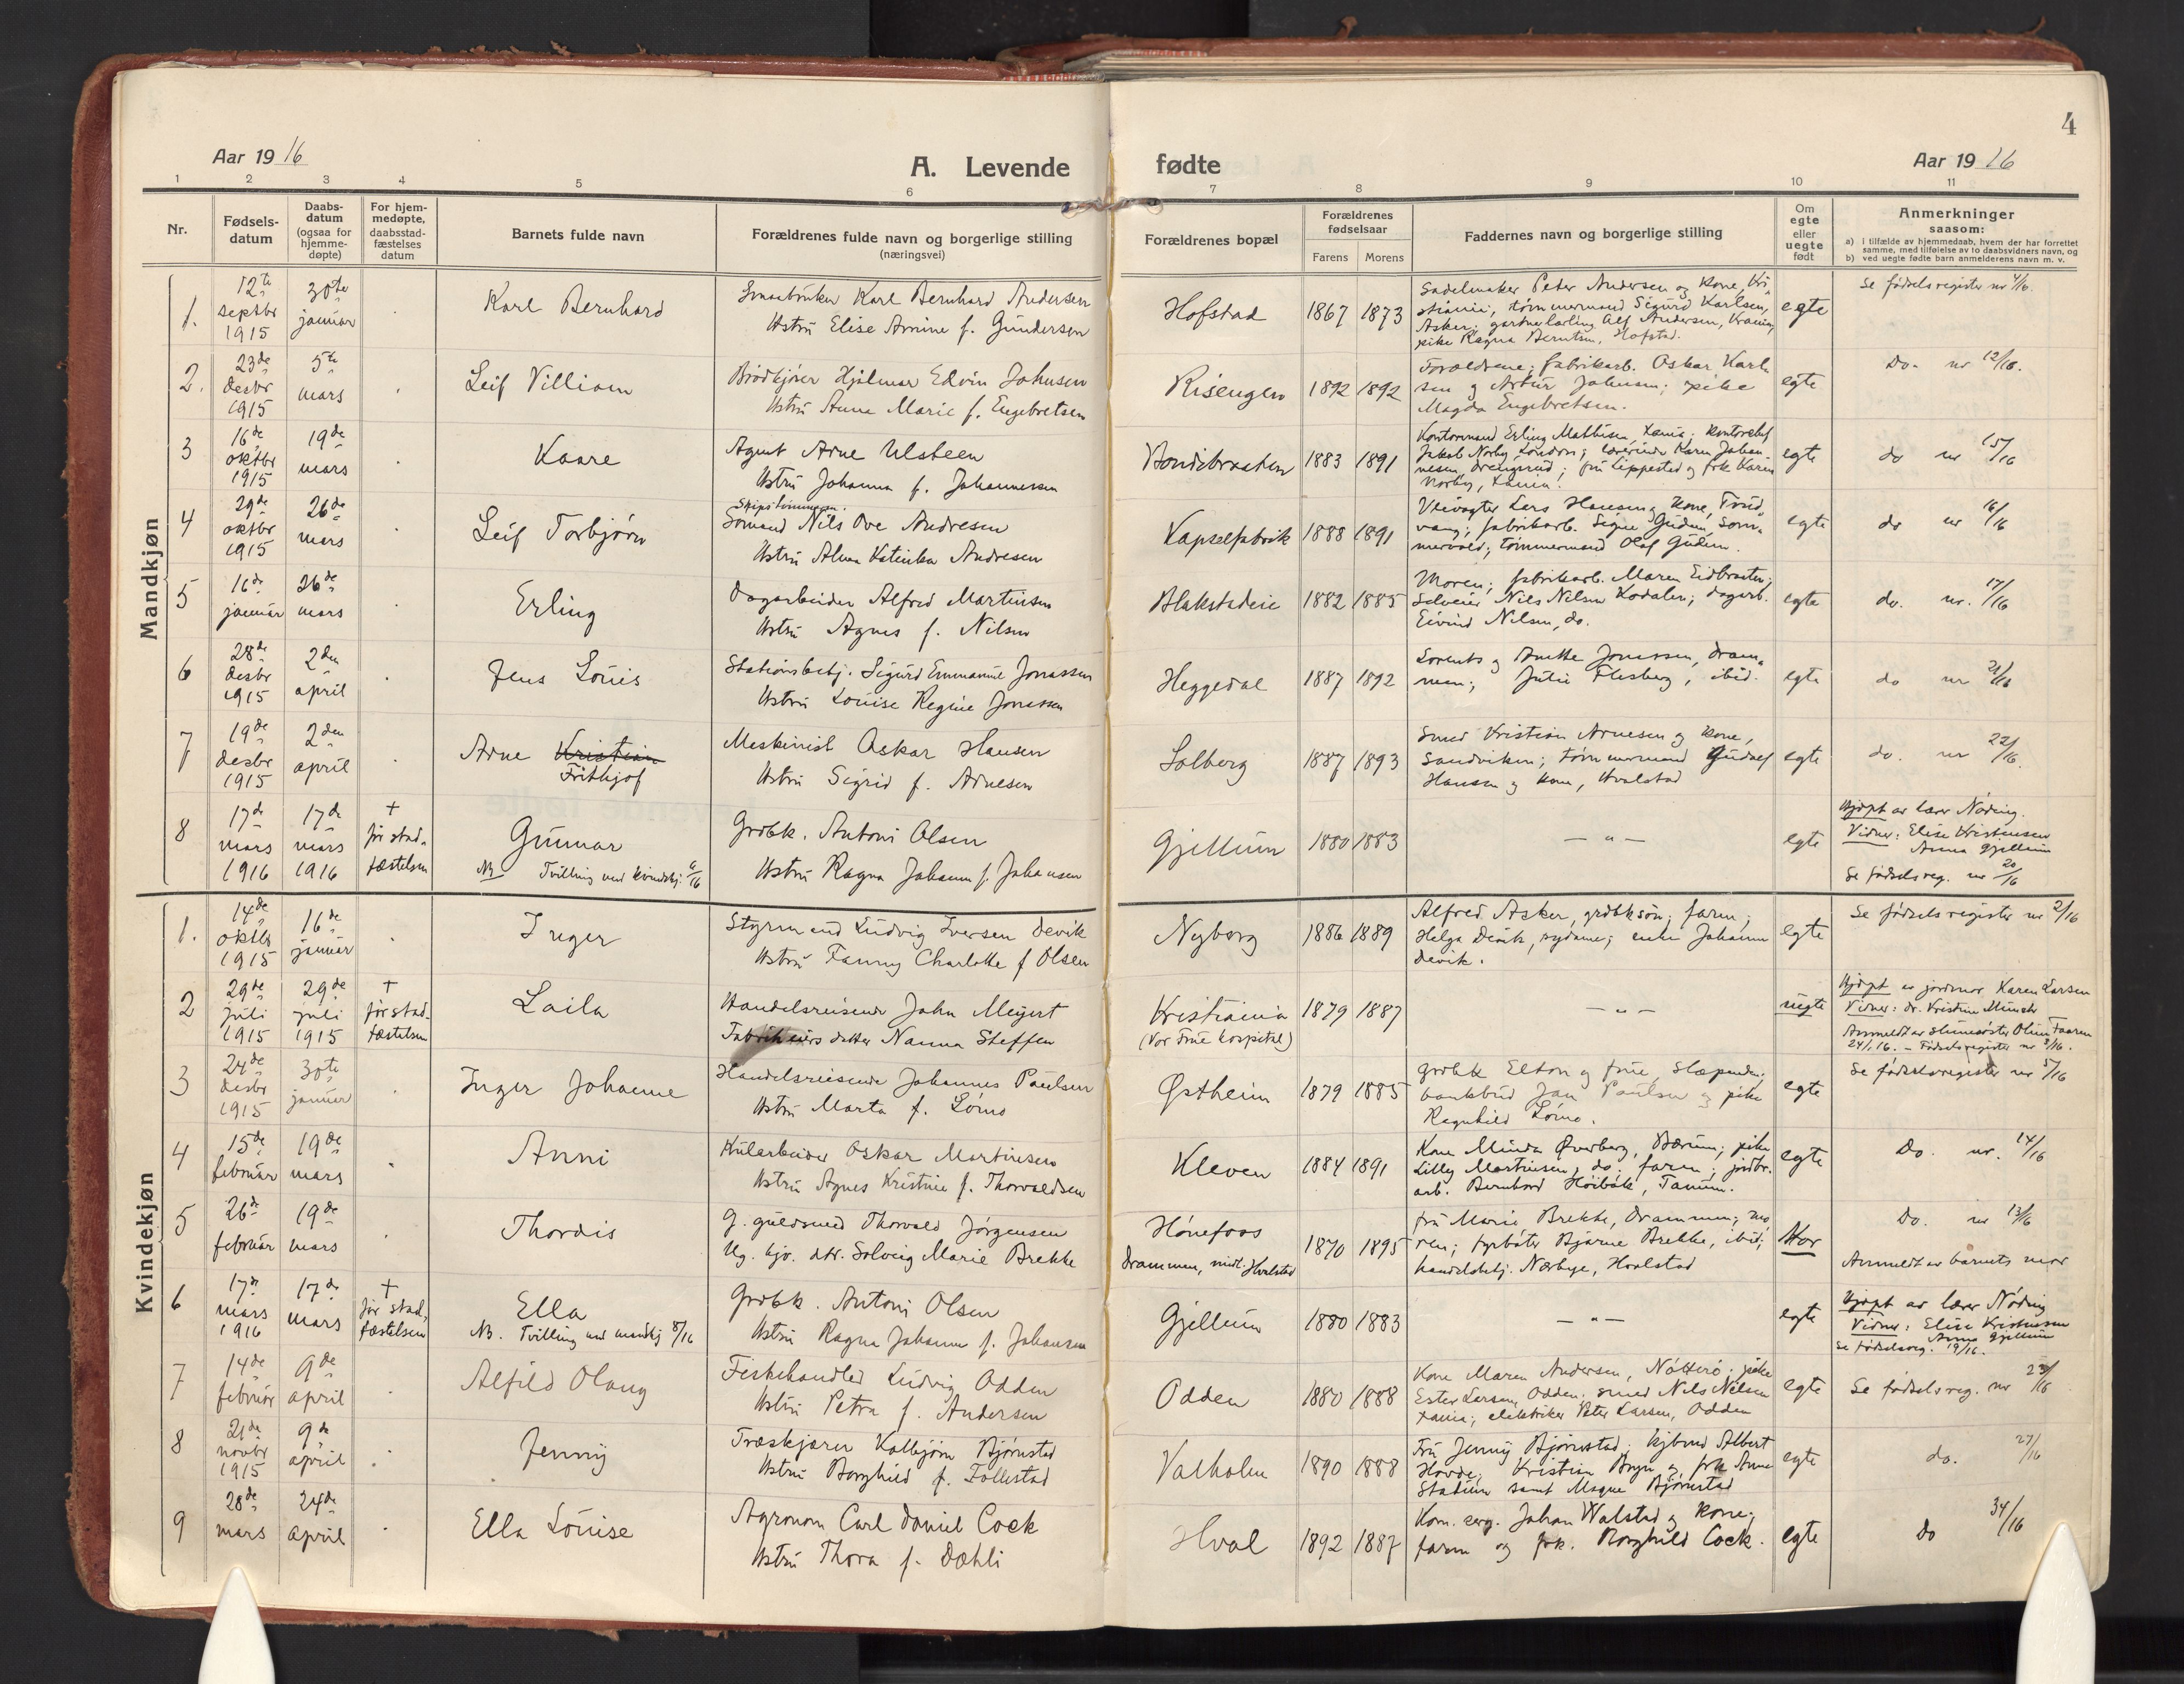 4
Aar 1916
A. Levende fødte
Aar 1916
1 2 3 4 5 6 7 8 9 10 11
Nr.
Fødsels-
datum
Daabs-
datum
(ogsaa for
hjemme-
døpte)
For hjem-
medøpte,
daabsstad-
fæstelses
datum
Barnets fulde navn
Forældrenes fulde navn og borgerlige stilling
(næringsvei)
Forældrenes bopæl
Forældrenes
fødselsaar
Farens Morens
Faddernes navn og borgerlige stilling
Om
egte
eller
uegte
født
Anmerkninger
saasom:
a) i tilfælde av hjemmedaab, hvem der har forrettet
samme, med tilføielse av to daabsvidners navn, og
b) ved uegte fødte barn anmelderens navn m. v.
Mandkjøn
1.
12te
septbr
1915
30te
januar
Karl Bernhard
Smaabruker Karl Bernhard Andersen
Hustru Elise Amine f. Gundersen
Hofstad
1867 1873
Sadelmaker Peter Andersen og kone, Kri-
stiania; tømmermand Sigurd Karlsen,
Asker; gartnerlærling Alf Andersen, Krania;
pike Ragna Berntsen, Hofstad.
egte
Se fødselsregister nr 4/16.
2.
23de
desbr
1915
5te
mars
Leif Villiam
Brødkjører Hjalmar Edvin Johnsen
Hustru Anne Marie f. Engebretsen
Risengen
1892 1892
Forældrene; fabrikarb. Oskar Karl-
sen og Artur Johnsen; pike
Magda Engebretsen.
egte
Do. nr 12/16.
3
16de
oktbr
1915
19de
mars
Kaare
Agent Arne Ulsteen
Hustru Johanna f. Johannessen
Bondibraaten
1883 1891
Kontormand Erling Mathisen, Krania; kontorchef
Jakob Norby, London; lærerinde Karen Johan-
nesen, Drengsrud; fru Lippestad og frk Karen
Norby, Krania.
egte
do nr 15/16
4
29de
oktbr
1915
26de
mars
Leif Torbjørn
Skipstømmerm.
Sømand Nils Ove Andresen
Hustru Alma Katinka Andresen
Kapselfabrik
1888 1891
Veivogter Lars Hansen og kone, Frid-
vang; fabrikarb. Signe Gudem, Som-
mervold; tømmermand Olaf Gudem.
egte
do nr 16/16
5
16de
januar
26de
mars
Erling
Dagarbeider Alfred Martinsen
Hustru Agnes f. Nilsen
Blakstadeie
1882 1885
Moren; fabrikarb. Maren Eidbraaten;
selveier Nils Nilsen Kodalen; dagarb.
Eivind Nilsen, do.
egte
do. nr. 17/16
6
28de
desbr
1915
2den
april
Jens Louis
Stationsbetj. Sigurd Emmanuel Jonassen
Hustru Louise Regine Jonassen
Heggedal
1887 1892
Lorents og Anette Jonassen, Dram-
men; Julie Flesberg, ibid.
egte
do nr 21/16
7
19de
desbr
1915
2den
april
Arne Kristian
Frithjof
Maskinist Oskar Hansen
Hustru Sigrid f. Arnesen
Solberg
1887 1893
Smed Kristian Arnesen og kone,
Sandviken; tømmermand Gudolf
Hansen og kone, Hvalstad
egte
do. nr 22/16.
8
17de
mars
1916
17de
mars
1916
+
før stad-
fæstelsen
Gunnar
NB Tvilling med kvindekj. 6/16
Grdbk. Antoni Olsen
Hustru Ragna Johanne f. Johansen
Gjellum
1880 1883
— " —
egte
Hjdøpt av lærer Nøding.
Vidner: Elise Kristensen
Anna Gjellum
Se fødselsreg. nr 20/16
Kvindekjøn
1.
14de
oktbr
1915
16de
januar
Inger
Styrmand Ludvig Iversen Devik
Hustru Fanny Charlotte f Olsen
Nyborg
1886 1889
Alfred Asker, grdbksøn; faren;
Helga Devik, sydame; enke Johanne
Devik.
egte
Se fødselsregister nr 2/16
2
29de
juli
1915
29de
juli
1915
+
før stad-
fæstelsen
Laila
Handelsreisende John Meyert
Fabrikeiers datter Nanna Steffen
Kristiania
(Vor Frue hospital)
1879 1887
— " —
uegte
Hjdøpt av jordmor Karen Larsen
Vidner: dr. Kristine Munch
Anmeldt av skinnesøster Oline Faaren
24/1 16. — Fødselsregister nr 3/16.
3
24de
desbr
1915
30te
januar
Inger Johanne
Handelsreisende Johannes Paulsen
Hustru Marta f. Lømo
Østheim
1879 1885
grdbk Elton og frue, Slæpenden;
bankbud Jan Paulsen og pike
Ragnhild Lømo.
egte
Se fødselsregister nr 5/16
4
15de
februar
19de
mars
Anni
Kularbeider Oskar Martinsen
Hustru Agnes Kristine f. Thorvaldsen
Kleven
1884 1891
Kone Minda Øverberg, Bærum; pike
Lilly Martinsen, do; faren; jordbr.
arb. Bernhard Høibak, Tanum.
egte
Do. nr. 14/16
5
26de
februar
19de
mars
Thordis
G. guldsmed Thorvald Jørgensen
Ug. hjv. dtr. Solveig Marie Brekke
Hønefoss
Drammen, midl. Hvalstad
1870 1895
fru Marie Brekke, Drammen; mo-
ren; fyrbøter Bjarne Brekke, ibid;
handelsbetj. Nærbye, Hvalstad
Hor
Do. nr 13/16
Anmeldt av barnets mor
6
17de
mars
1916
17de
mars
+
før stad-
fæstelsen
Ella
NB. Tvilling med mandkj 8/16
Grdbk. Antoni Olsen
Hustru Ragna Johanne f. Johansen
Gjellum
1880 1883
— " —
egte
Hjdøpt av lærer Nøding
Vidner: Elise Kristensen
Anna Gjellum
Se fødselsreg. 19/16.
7
14de
februar
9de
april
Alfild Olaug
Fiskehandler Ludvig Odden
Hustru Petra f. Andersen
Odden
1880 1888
Kone Maren Andersen, Nøtterø; pike
Ester Larsen, Odden; smed Nils Nilsen
Krania; elektriker Peter Larsen, Odden
egte
Se fødselsreg. nr 23/16
8
21de
novbr
1915
9de
april
Jenny
Træskjærer Kolbjørn Bjørnstad
Hustru Borghild f. Follestad
Valholm
1890 1888
Fru Jenny Bjørnstad; kjbmd Albert
Hovde; Kristian Bryn og frk Anne
Stadium samt Magne Bjørnstad
egte
do. 27/16
9
28de
mars
24de
april
Ella Louise
Agronom Carl Daniel Cock
Hustru Thora f. Dæhli
Hval
1892 1887
Kom. serg. Johan Walstad og kone;
faren og frk. Borghild Cock.
egte
Do 34/16